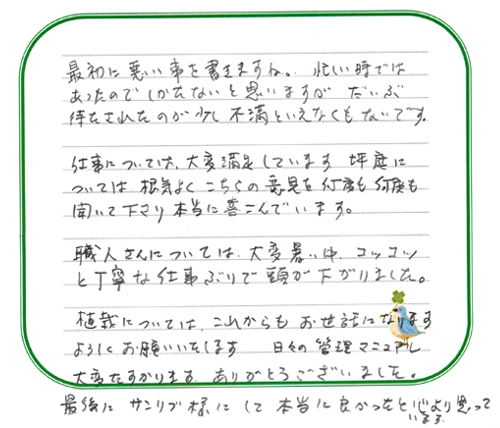 最初に悪い事を書きますね。忙しい時では
あったのでしかたないと思いますが だいぶ
待たされたのが少し不満といえなくもないです。
仕事については、大変満足しています 坪庭に
ついては 根気よく こちらの意見を何度も何度も
聞いて下さり本当に喜こんでいます。
職人さんについては、大変暑い中、コツコツ
と丁寧な仕事ぶりで頭が下がりました。
植栽については、これからも お世話になります
よろしくお願いいたします 日々の管理マニュアル
大変たすかります、ありがとうございました。
最後に サンリブ様にして 本当に良かったと心より思って
います